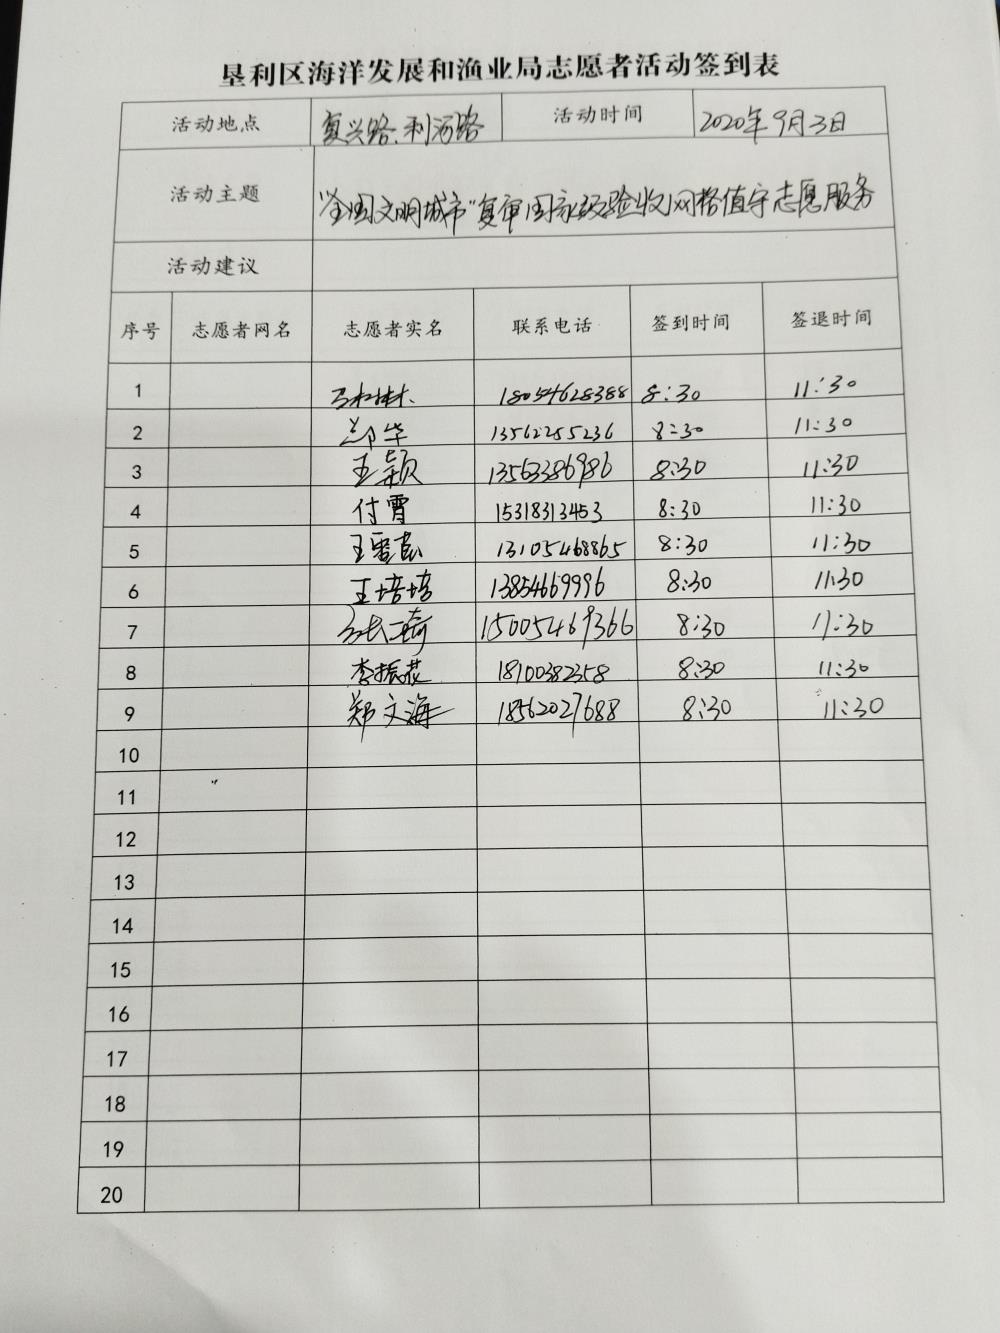 垦利区海洋发展和渔业局志愿者活动签到表
活动地点 复兴路、利河路 活动时间 2020年9月3日
活动主题 "全国文明城市"复审国家级验收网格值守志愿服务
活动建议
序号 志愿者网名 志愿者实名 联系电话 签到时间 签退时间
1 18054628388 8:30 11:30
2 邹华 13562285236 8:30 11:30
3 王颖 13563386986 8:30 11:30
4 付霄 15318313453 8:30 11:30
5 13105468865 8:30 11:30
6 王培培 13854669996 8:30 11:30
7 15005469366 8:30 11:30
8 李振花 18100382358 8:30 11:30
9 郑文海 18562027688 8:30 11:30
10
11
12
13
14
15
16
17
18
19
20